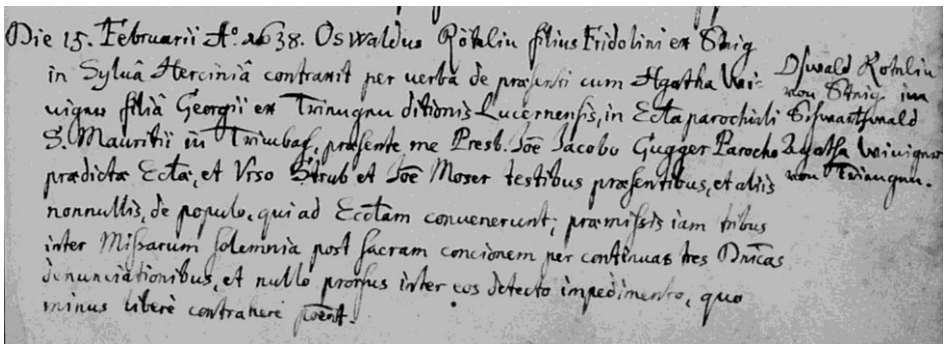 Die 15. Februarii Aº. 1638. Oswaldus Rötelin filius Fridolini ex Stüig
in Sylvâ Herciniâ contraxit per verba de præsenti cum Agatha Wi-
nigner filiâ Georgii ex ditionis Lucernensis, in Eccła parochiali
S. Mauritii in Trimbach, præsente me Presb. Joē Jacobo Gugger Parocho
prædictæ Eccłæ, et Vrso Strub et Joē Moser testibus præsentibus, et aliis
nonnullis, de populo, qui ad Eccłam convenerunt; præmissis iam tribus
inter Missarum solemnia post sacram concionem per continuas tres Dnīcas
denunciationibus, et nullo prorsus inter eos detecto impedimento, quo
minus liberè contrahere poēnt.
Oswald Rötelin
von Stüig im
Schwartzwald
Agatha
von